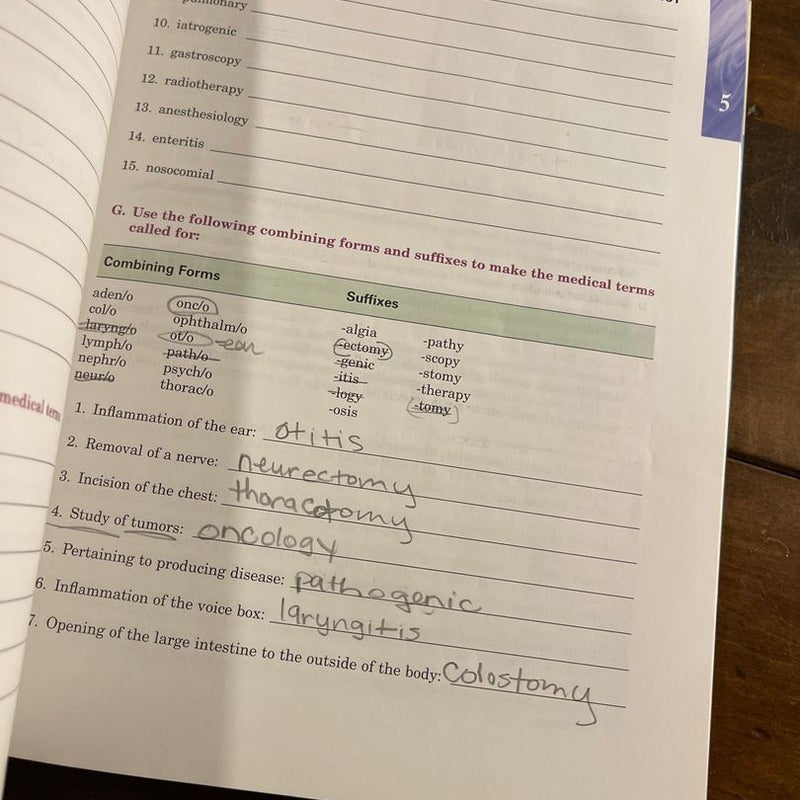 10. iatrogenic
11. gastroscopy
12. radiotherapy
13. anesthesiology
14. enteritis
15. nosocomial
5
G. Use the following combining forms and suffixes to make the medical terms
called for:
Combining Forms Suffixes
aden/o onc/o -algia -pathy
col/o ophthalm/o -ectomy -scopy
laryng/o ot/o -ear -genic -stomy
lymph/o path/o -itis -therapy
nephr/o psych/o -logy -tomy
neur/o thorac/o -osis
medical
1. Inflammation of the ear: otitis
2. Removal of a nerve: neurectomy
3. Incision of the chest: thoracotomy
4. Study of tumors: oncology
5. Pertaining to producing disease: pathogenic
6. Inflammation of the voice box: laryngitis
7. Opening of the large intestine to the outside of the body: Colostomy